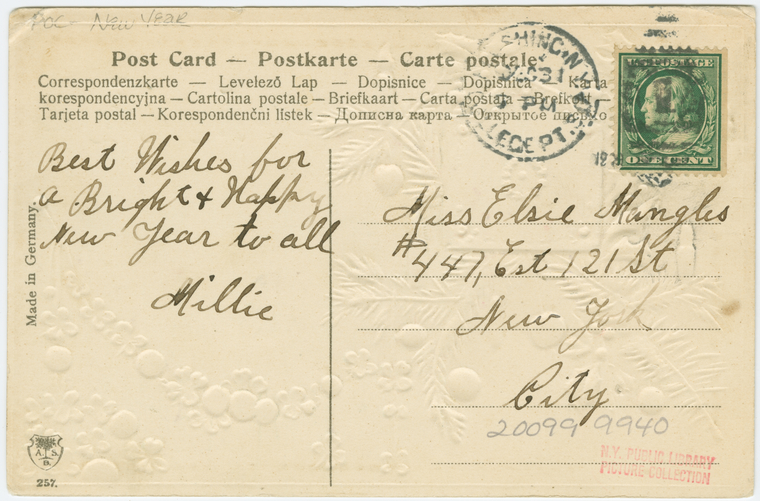 POC - New Year
Post Card — Postkarte — Carte postale
Correspondenzkarte — Levelező Lap — Dopisnice — Dopisnica — Karta
korespondencyjna — Cartolina postale — Briefkaart — Carta postala — Brefkort
Tarjeta postal — Korespondenční listek — Дописна карта — Открытое письмо
U.S. POSTAGE
ONE CENT
Best Wishes for
a Bright & Happy
New Year to all
Millie
Miss Elsie Mangles
#447, Est 121 St
New York
City
Made in Germany.
20099 9940
N.Y. PUBLIC LIBRARY
PICTURE COLLECTION
A. S.
B.
257.